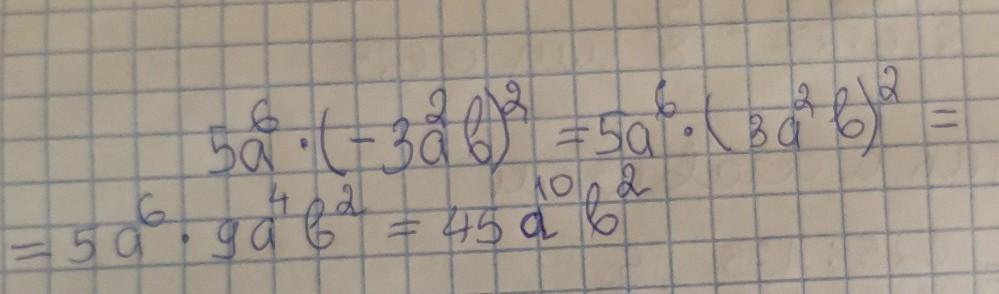 5a⁶·(-3a²b)² = 5a⁶·(3a²b)² =
= 5a⁶·9a⁴b² = 45a¹⁰b²